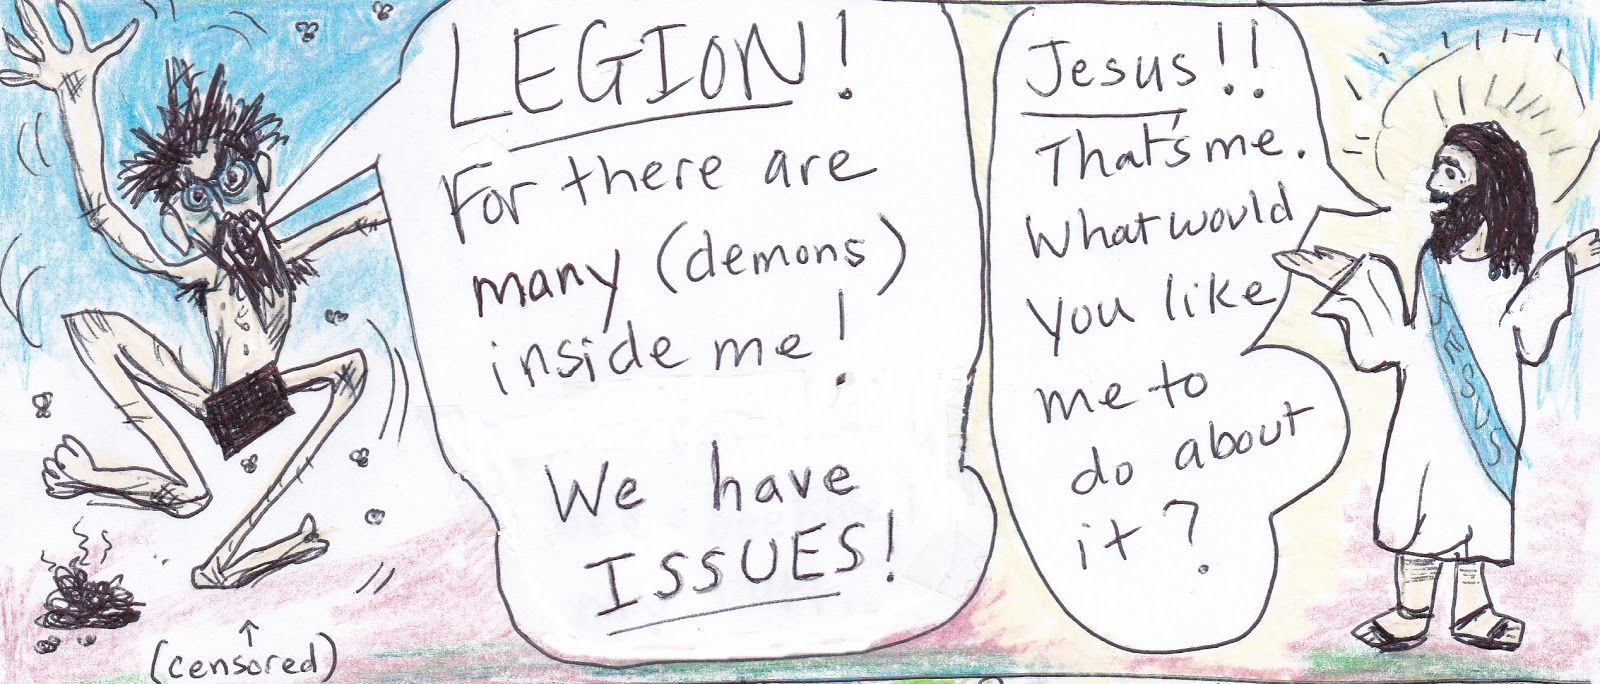 LEGION!
For there are
many (demons)
inside me!
We have
ISSUES!
(censored)
Jesus!!
That's me.
What would
you like
me to
do about
it?
JESUS